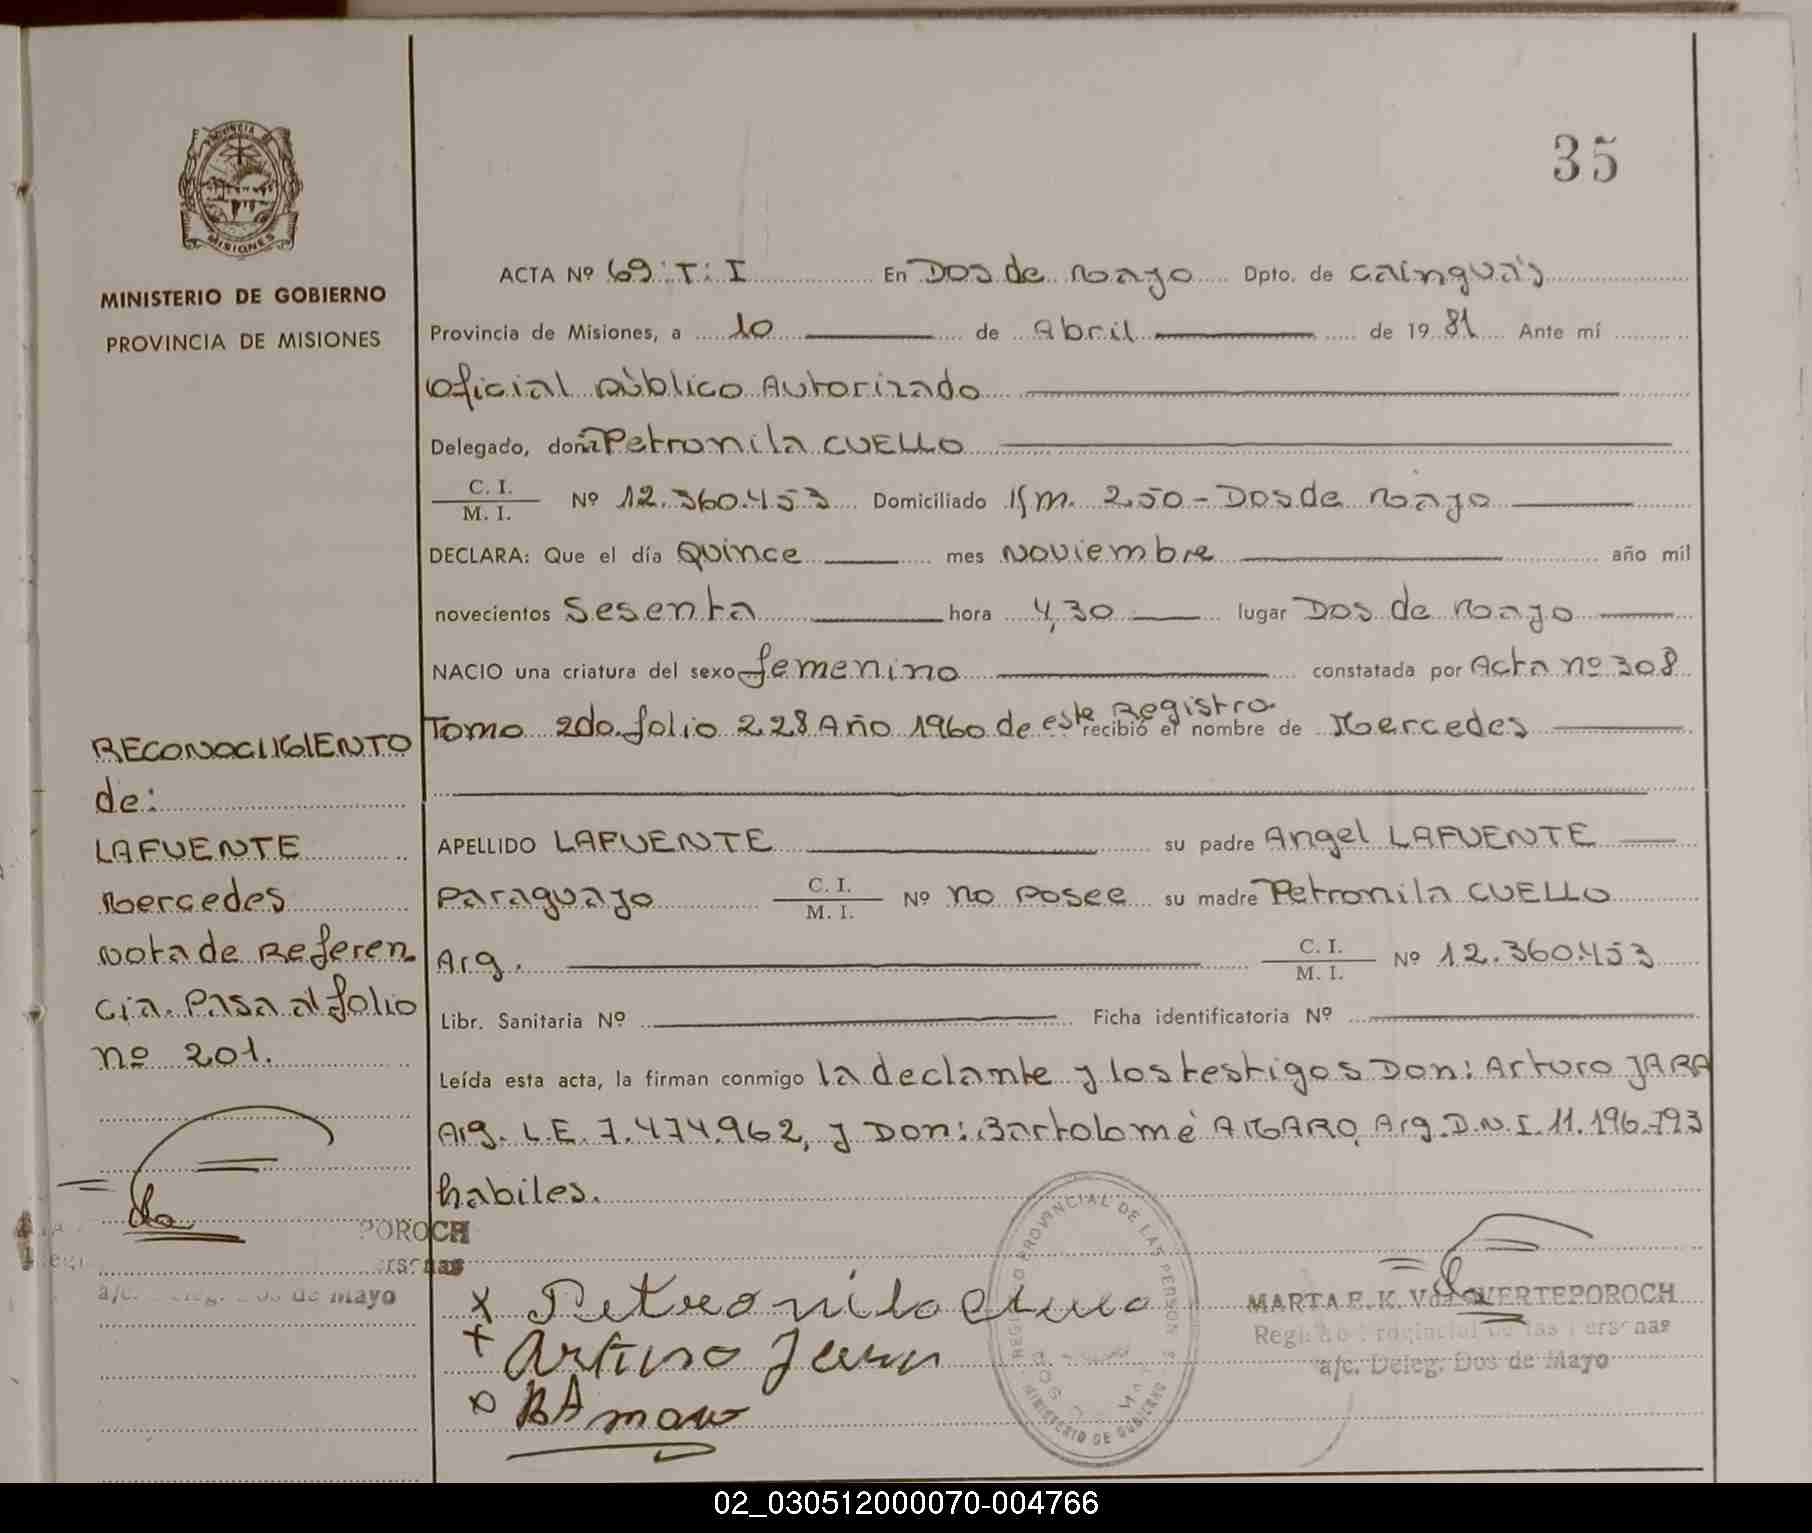 35
PROVINCIA DE
MISIONES
MINISTERIO DE GOBIERNO
PROVINCIA DE MISIONES
ACTA Nº 69: T: I En Dos de Mayo Dpto. de Cainguás
Provincia de Misiones, a 10 de Abril de 1981 Ante mí
Oficial Público Autorizado
Delegado, doña Petronila CUELLO
C. I.
M. I. Nº 12.360.453 Domiciliado Km. 250 - Dos de Mayo
DECLARA: Que el día Quince mes Noviembre año mil
novecientos Sesenta hora 4,30 lugar Dos de Mayo
NACIO una criatura del sexo femenino constatada por Acta nº 308
Tomo 2do. folio 228 Año 1960 de este Registro. recibió el nombre de Mercedes
APELLIDO LAFUENTE su padre Angel LAFUENTE
Paraguayo C. I.
M. I. Nº no posee su madre Petronila CUELLO
Arg. C. I.
M. I. Nº 12.360.453
Libr. Sanitaria Nº Ficha identificatoria Nº
Leída esta acta, la firman conmigo la declante y los testigos Don: Arturo JARA
Arg. L.E. 7.474.962, y Don: Bartolomé AMARO, Arg. D.N.I. 11.196.793
habiles.
RECONOCIMIENTO
de:
LAFUENTE
Mercedes
Nota de Referen
cia. Pasa al folio
nº 201.
POROCH
ersonas
a/c. Deleg. Dos de Mayo
x Petronila Cuello
+ Arturo Jara
x BAmaro
REGISTRO PROVINCIAL DE LAS PERSONAS
MINISTERIO DE GOBIERNO
MARTA E. K. Vda. WERTEPOROCH
Registro Provincial de las Personas
a/c. Deleg. Dos de Mayo
02_030512000070-004766